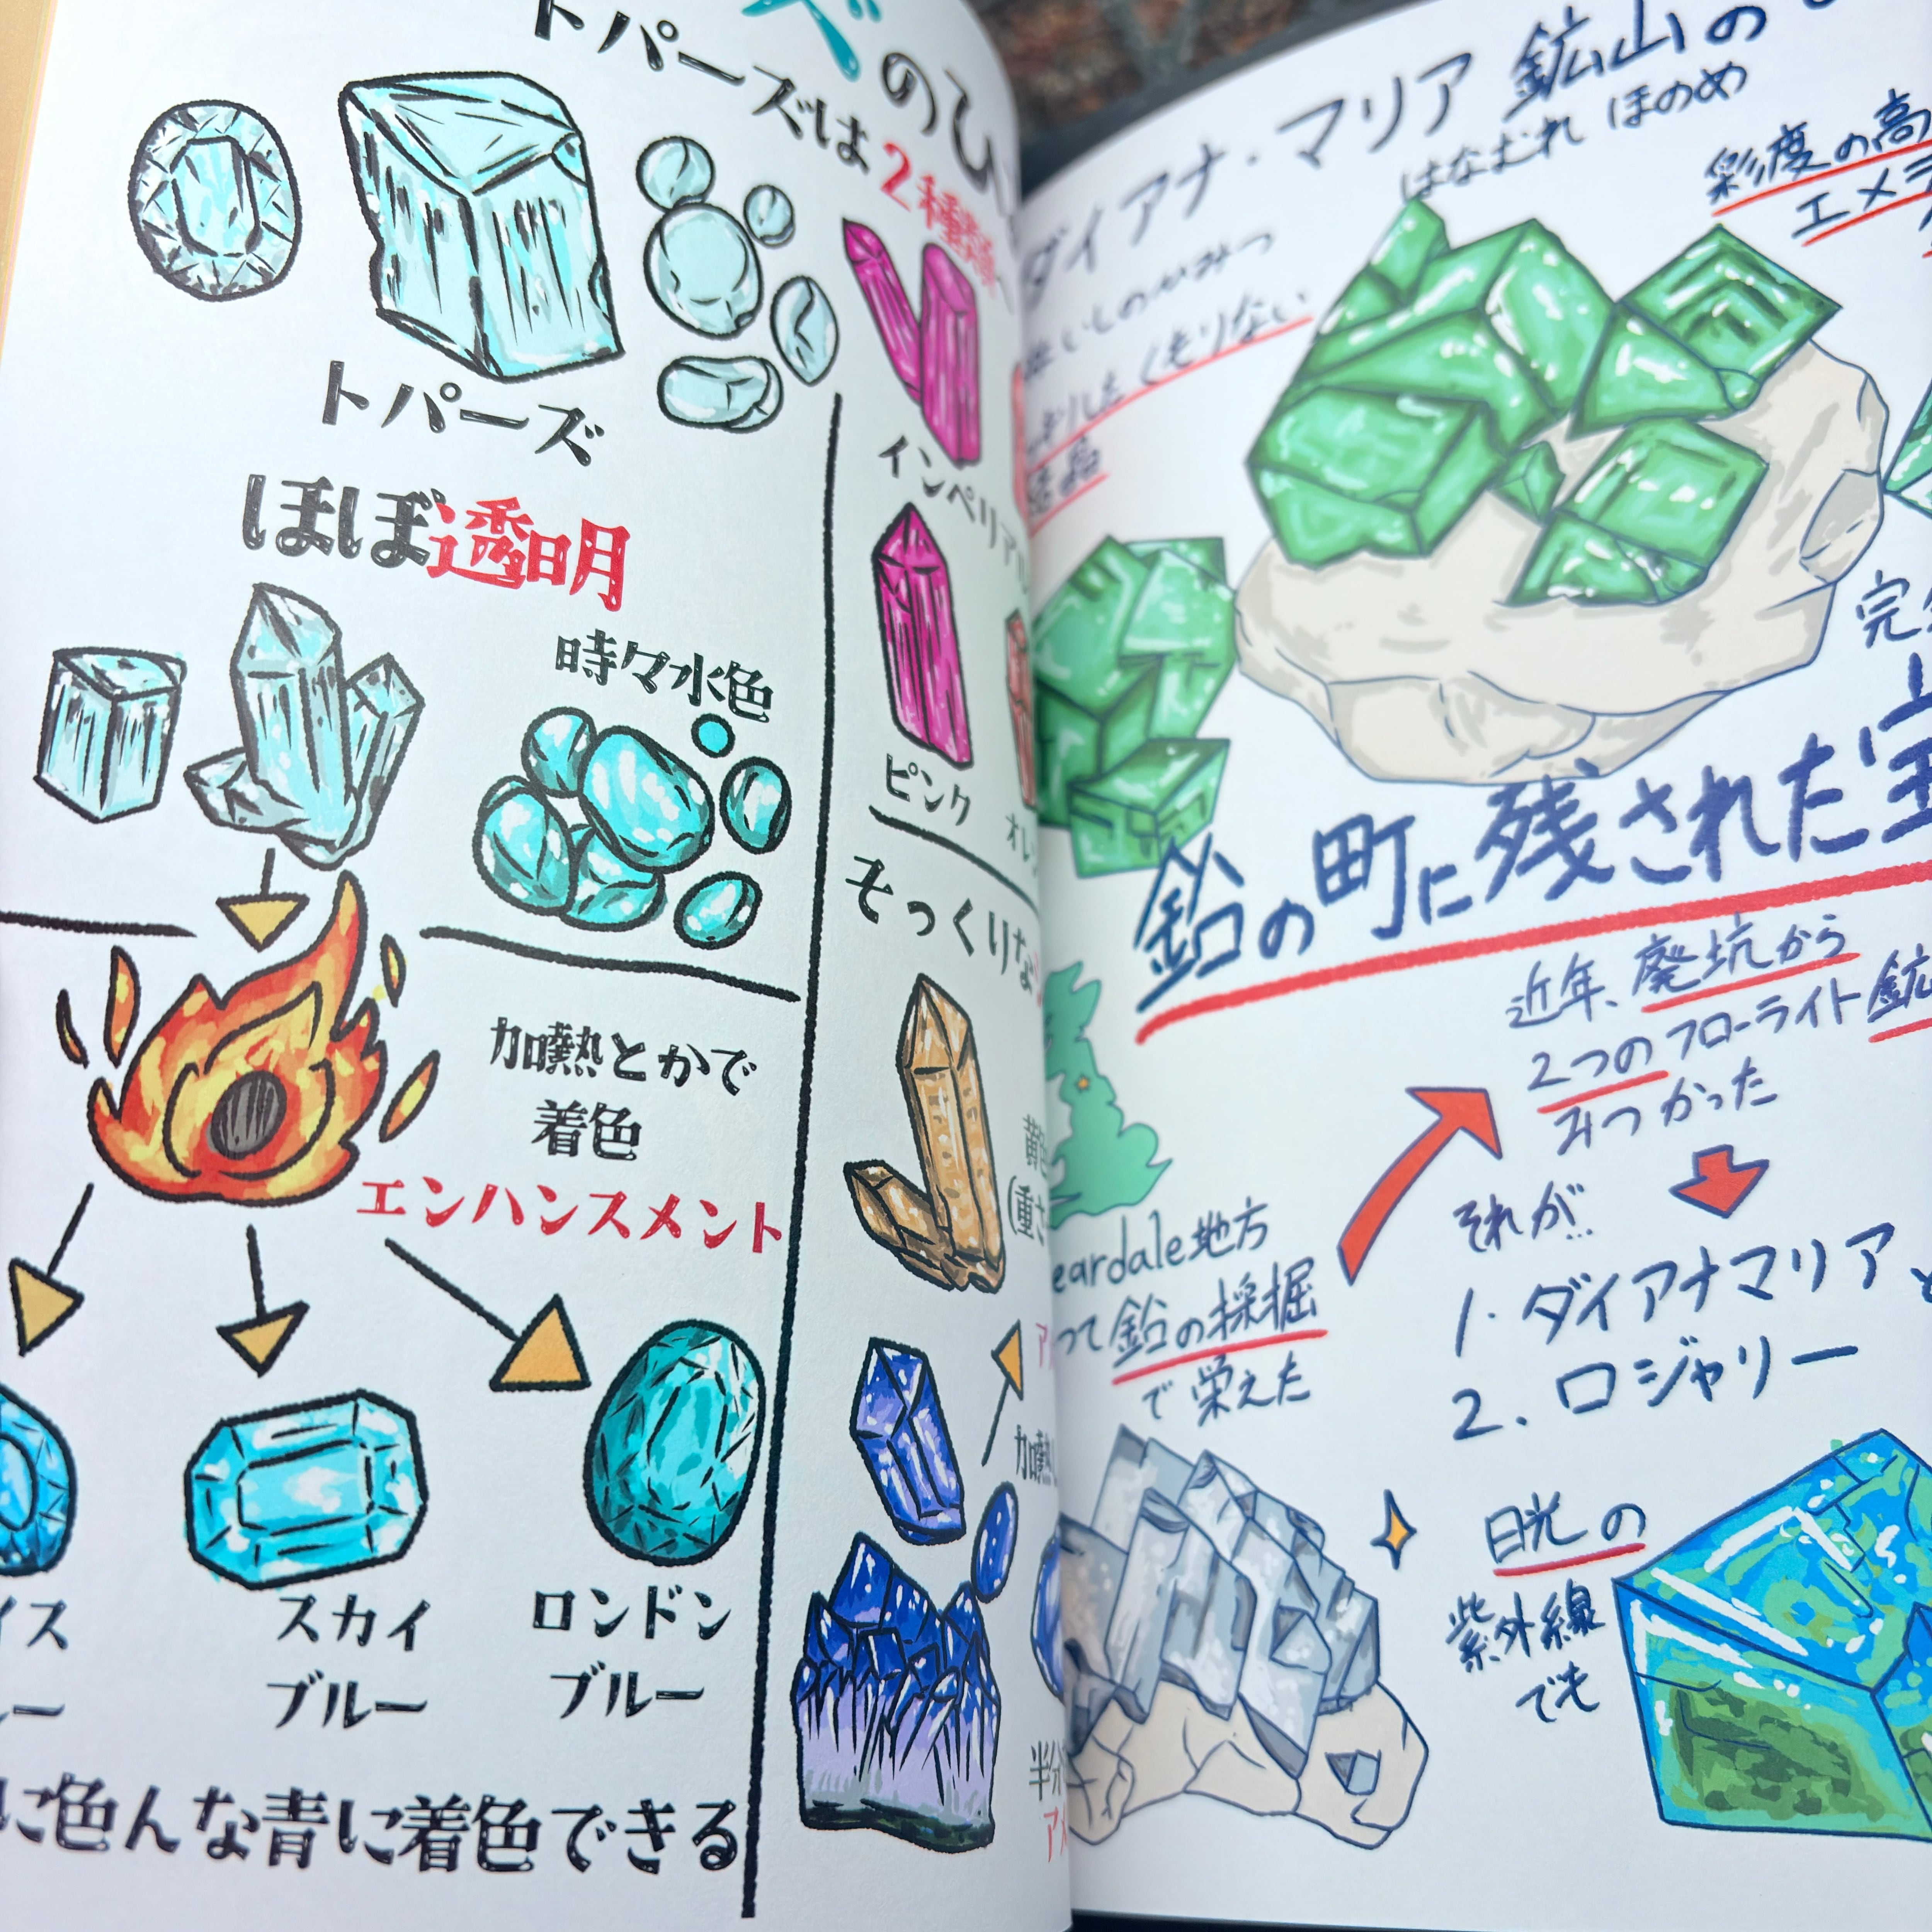 トパーズは2種類
トパーズ
ほぼ透明
時々水色
加熱とかで
着色
エンハンスメント
スカイ
ブルー
ロンドン
ブルー
に色んな青に着色できる
インペリアル
ピンク
そっくりな
ダイアナ・マリア 鉱山の
はなむれ ほのめ
くもりない
結晶
彩度の高
エメラ
鉛の町に残された宝
近年、廃坑から
2つのフローライト鉱
みつかった
それが…
1. ダイアナマリア
2. ロジャリー
eardale地方
つて鉛の採掘
で栄えた
日光の
紫外線
でも